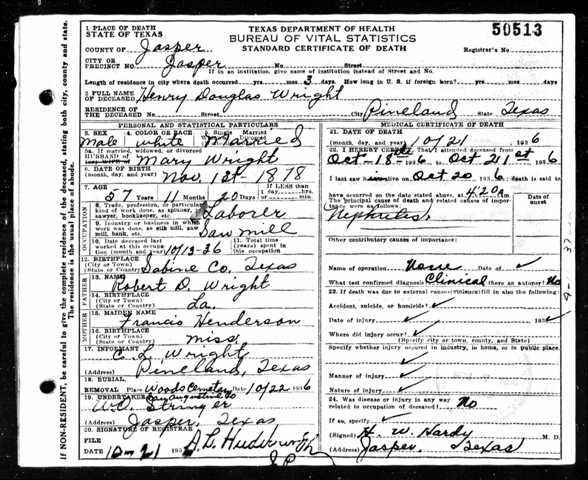 1 PLACE OF DEATH
STATE OF TEXAS
TEXAS DEPARTMENT OF HEALTH
BUREAU OF VITAL STATISTICS
STANDARD CERTIFICATE OF DEATH
50513
COUNTY OF Jasper
Registrar's No.
CITY OR
PRECINCT NO. Jasper No. Street
If in an institution, give name of institution instead of Street and No.
Length of residence in city where death occurred yrs. mos. 3 days. How long in U. S. if foreign born? yrs. mos. days.
2 FULL NAME
OF DECEASED Henry Douglas Wright
RESIDENCE OF
THE DECEASED No. Street City Pineland State Texas
PERSONAL AND STATISTICAL PARTICULARS
3. SEX 4. COLOR OR RACE 5. Single Married
Male white Married
5a. If married, widowed, or divorced
HUSBAND OF
(or) WIFE OF Mary Wright
6. DATE OF BIRTH
(month, day, and year) Nov, 1st 1878
7. AGE If LESS than
57 Years 11 Months 20 Days 1 day, hrs. min.
OCCUPATION
8. Trade, profession, or particular
kind of work done, as spinner,
sawyer, bookkeeper, etc. Laborer
9. Industry or business in which
work was done, as silk mill, saw
mill, bank, etc. Saw mill
10. Date deceased last
worked at this occupa-
tion (month and year) 10/13-36
11. Total time
(years) spent in
this occupation
12. BIRTHPLACE
(City or Town)
(State or Country) Sabine Co, Texas
FATHER
13. NAME Robert D. Wright
14. BIRTHPLACE
(City or Town)
(State or Country) La
MOTHER
15. MAIDEN NAME Francis Henderson
16. BIRTHPLACE
(City or Town)
(State or Country) Miss
17. INFORMANT C. L. Wright
(Address) Pineland, Texas
18. BURIAL,
REMOVAL Place Woods Cemetery Date 10/22 1936
19. UNDERTAKER San Augustine Co
Stringer
(Address) Jasper, Texas
20. SIGNATURE OF REGISTRAR
FILE
DATE 10-21 193
MEDICAL CERTIFICATE OF DEATH
21. DATE OF DEATH
(month, day, year) 10/21 1936
22. I HEREBY CERTIFY that I attended deceased from
Oct-18- 1936 to Oct 21st 1936
I last saw alive on Oct 20 1936. Death is said to have
occurred on the date stated above, at 4:20 a m.
The principal cause of death and related causes of impor-
tance were as follows:
Date of onset
Nephritis
Other contributory causes of importance:
Name of operation None Date of
What test confirmed diagnosis? Clinical Was there an autopsy? No
23. If death was due to external causes (violence) fill in also the following:
Accident, suicide, or homicide?
Date of injury 193
Where did injury occur?
(Specify city or town, county, and State)
Specify whether injury occurred in industry, in home, or in public place.
Manner of injury
Nature of injury
24. Was disease or injury in any way
related to occupation of deceased? No
If so, specify
(Signed) H. W. Hardy M. D.
(Address) Jasper, Texas
The residence is usual place of abode.
If NON-RESIDENT, be careful to give the complete residence of the deceased, stating both city, county and state.